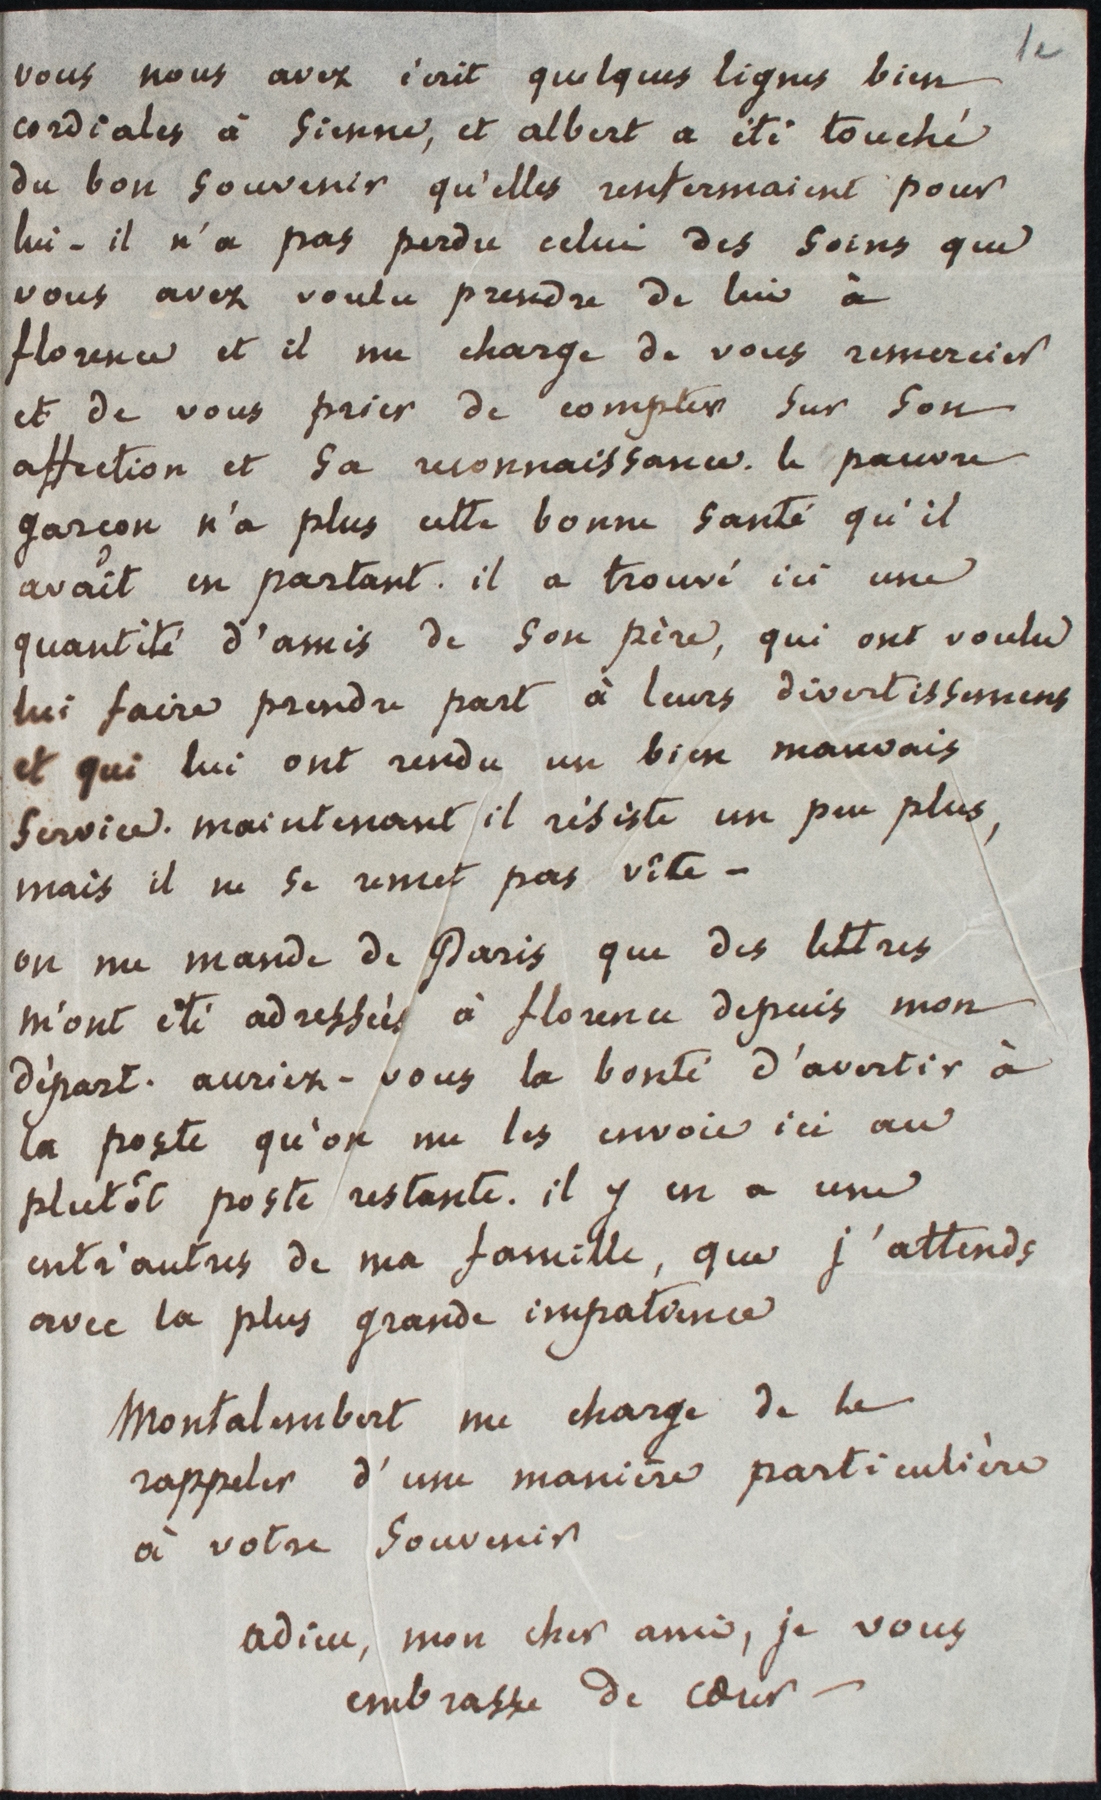 vous nous avez écrit quelques lignes bien
cordiales à Sienne, et albert a été touché
du bon souvenir qu'elles renfermaient pour
lui - il n'a pas perdu celui des soins que
vous avez voulu prendre de lui à
florence et il me charge de vous remercier
et de vous prier de compter sur son
affection et sa reconnaissance. le pauvre
garcon n'a plus cette bonne santé qu'il
avait en partant. il a trouvé ici une
quantité d'amis de son père, qui ont voulu
lui faire prendre part à leurs divertissemens
et qui lui ont rendu un bien mauvais
service. maintenant il résiste un peu plus,
mais il ne se remet pas vîte -
on me mande de Paris que des lettres
m'ont été adressées à florence depuis mon
départ. auriez-vous la bonté d'avertir à
la poste qu'on me les envoie ici au
plutôt poste restante. il y en a une
entr'autres de ma famille, que j'attends
avec la plus grande impatience
Montalembert me charge de le
rappeler d'une manière particulière
à votre souvenir
adieu, mon cher ami, je vous
embrasse de cœur -